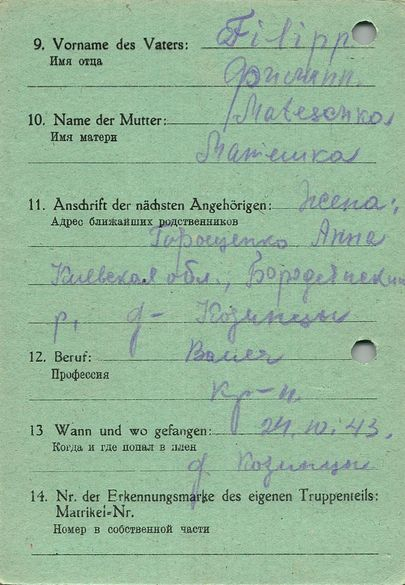 9. Vorname des Vaters: Filipp
Имя отца
Филипп.
10. Name der Mutter: Mateschka
Имя матери
Матешка
11. Anschrift der nächsten Angehörigen: Жена:
Адрес ближайших родственников
Горощенко Анна
Киевская обл., Бородянский
р, д- Козинцы
12. Beruf: Bauer
Профессия
кр-н.
13 Wann und wo gefangen: 24.10.43.
Когда и где попал в плен
д. Козинцы
14. Nr. der Erkennungsmarke des eigenen Truppenteils:
Matrikel-Nr.
Номер в собственной части